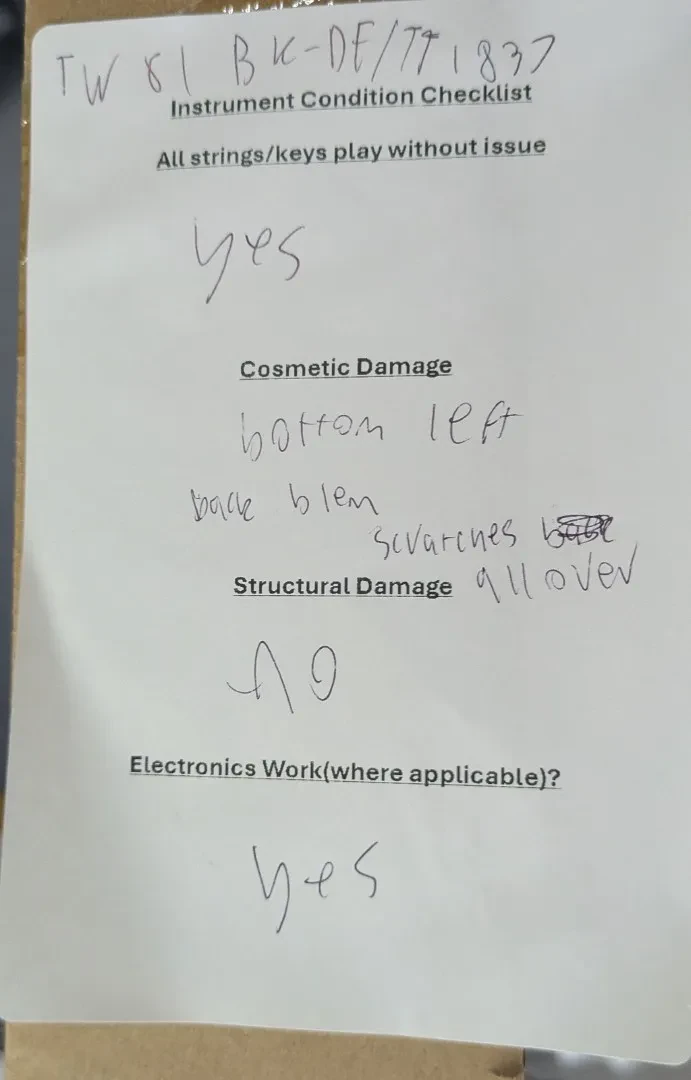 TW 81 BK-DF/TT 1837
Instrument Condition Checklist
All strings/keys play without issue
yes
Cosmetic Damage
bottom left
back blem
scratches
all over
Structural Damage
no
Electronics Work(where applicable)?
yes